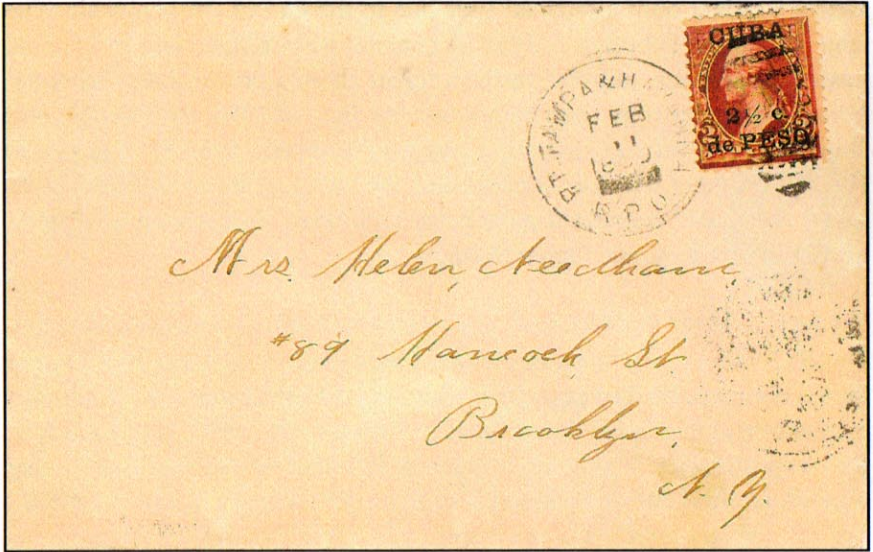 CUBA
2 ½ c.
de PESO
PT. TAMPA & HAVANA
FEB
11
R.P.O.
Mrs. Helen Needham
#89 Hancock St.
Brooklyn,
N. Y.